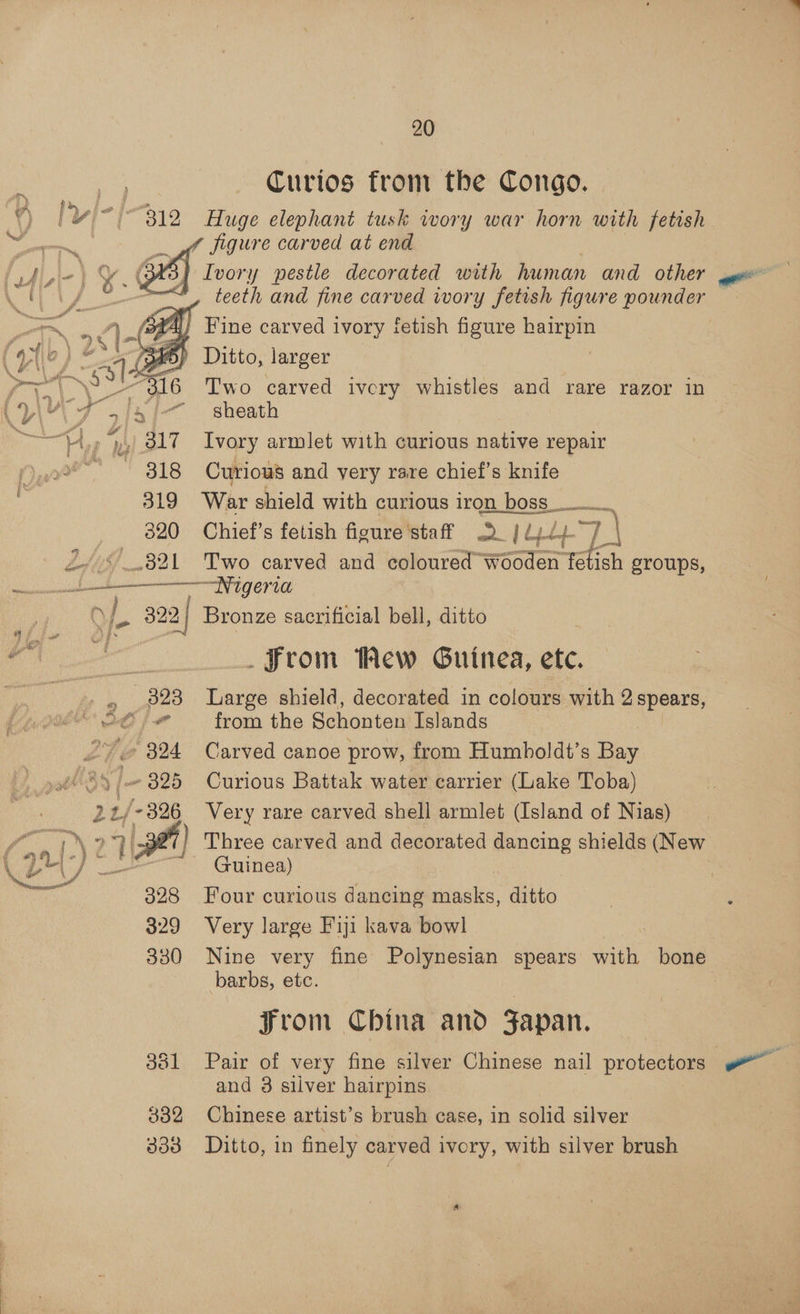 20
Curios from the Congo.
312 Huge elephant tusk ivory war horn with fetish
figure carved at end
313 Ivory pestle decorated with human and other
teeth and fine carved ivory fetish figure pounder
314 Fine carved ivory fetish figure hairpin
315 Ditto, larger
316 Two carved ivory whistles and rare razor in
sheath
317 Ivory armlet with curious native repair
318 Curious and very rare chief's knife
319 War shield with curious iron boss
320 Chief's fetish figure staff
321 Two carved and coloured wooden fetish groups,
Nigeria
322 Bronze sacrificial bell, ditto
From New Guinea, etc.
323 Large shield, decorated in colours with 2 spears,
from the Schonten Islands
324 Carved canoe prow, from Humboldt's Bay
325 Curious Battak water carrier (Lake Toba)
326 Very rare carved shell armlet (Island of Nias)
327 Three carved and decorated dancing shields (New
Guinea)
328 Four curious dancing masks, ditto
329 Very large Fiji kava bowl
330 Nine very fine Polynesian spears with bone
barbs, etc.
From China and Japan.
331 Pair of very fine silver Chinese nail protectors
and 3 silver hairpins
332 Chinese artist's brush case, in solid silver
333 Ditto, in finely carved ivory, with silver brush